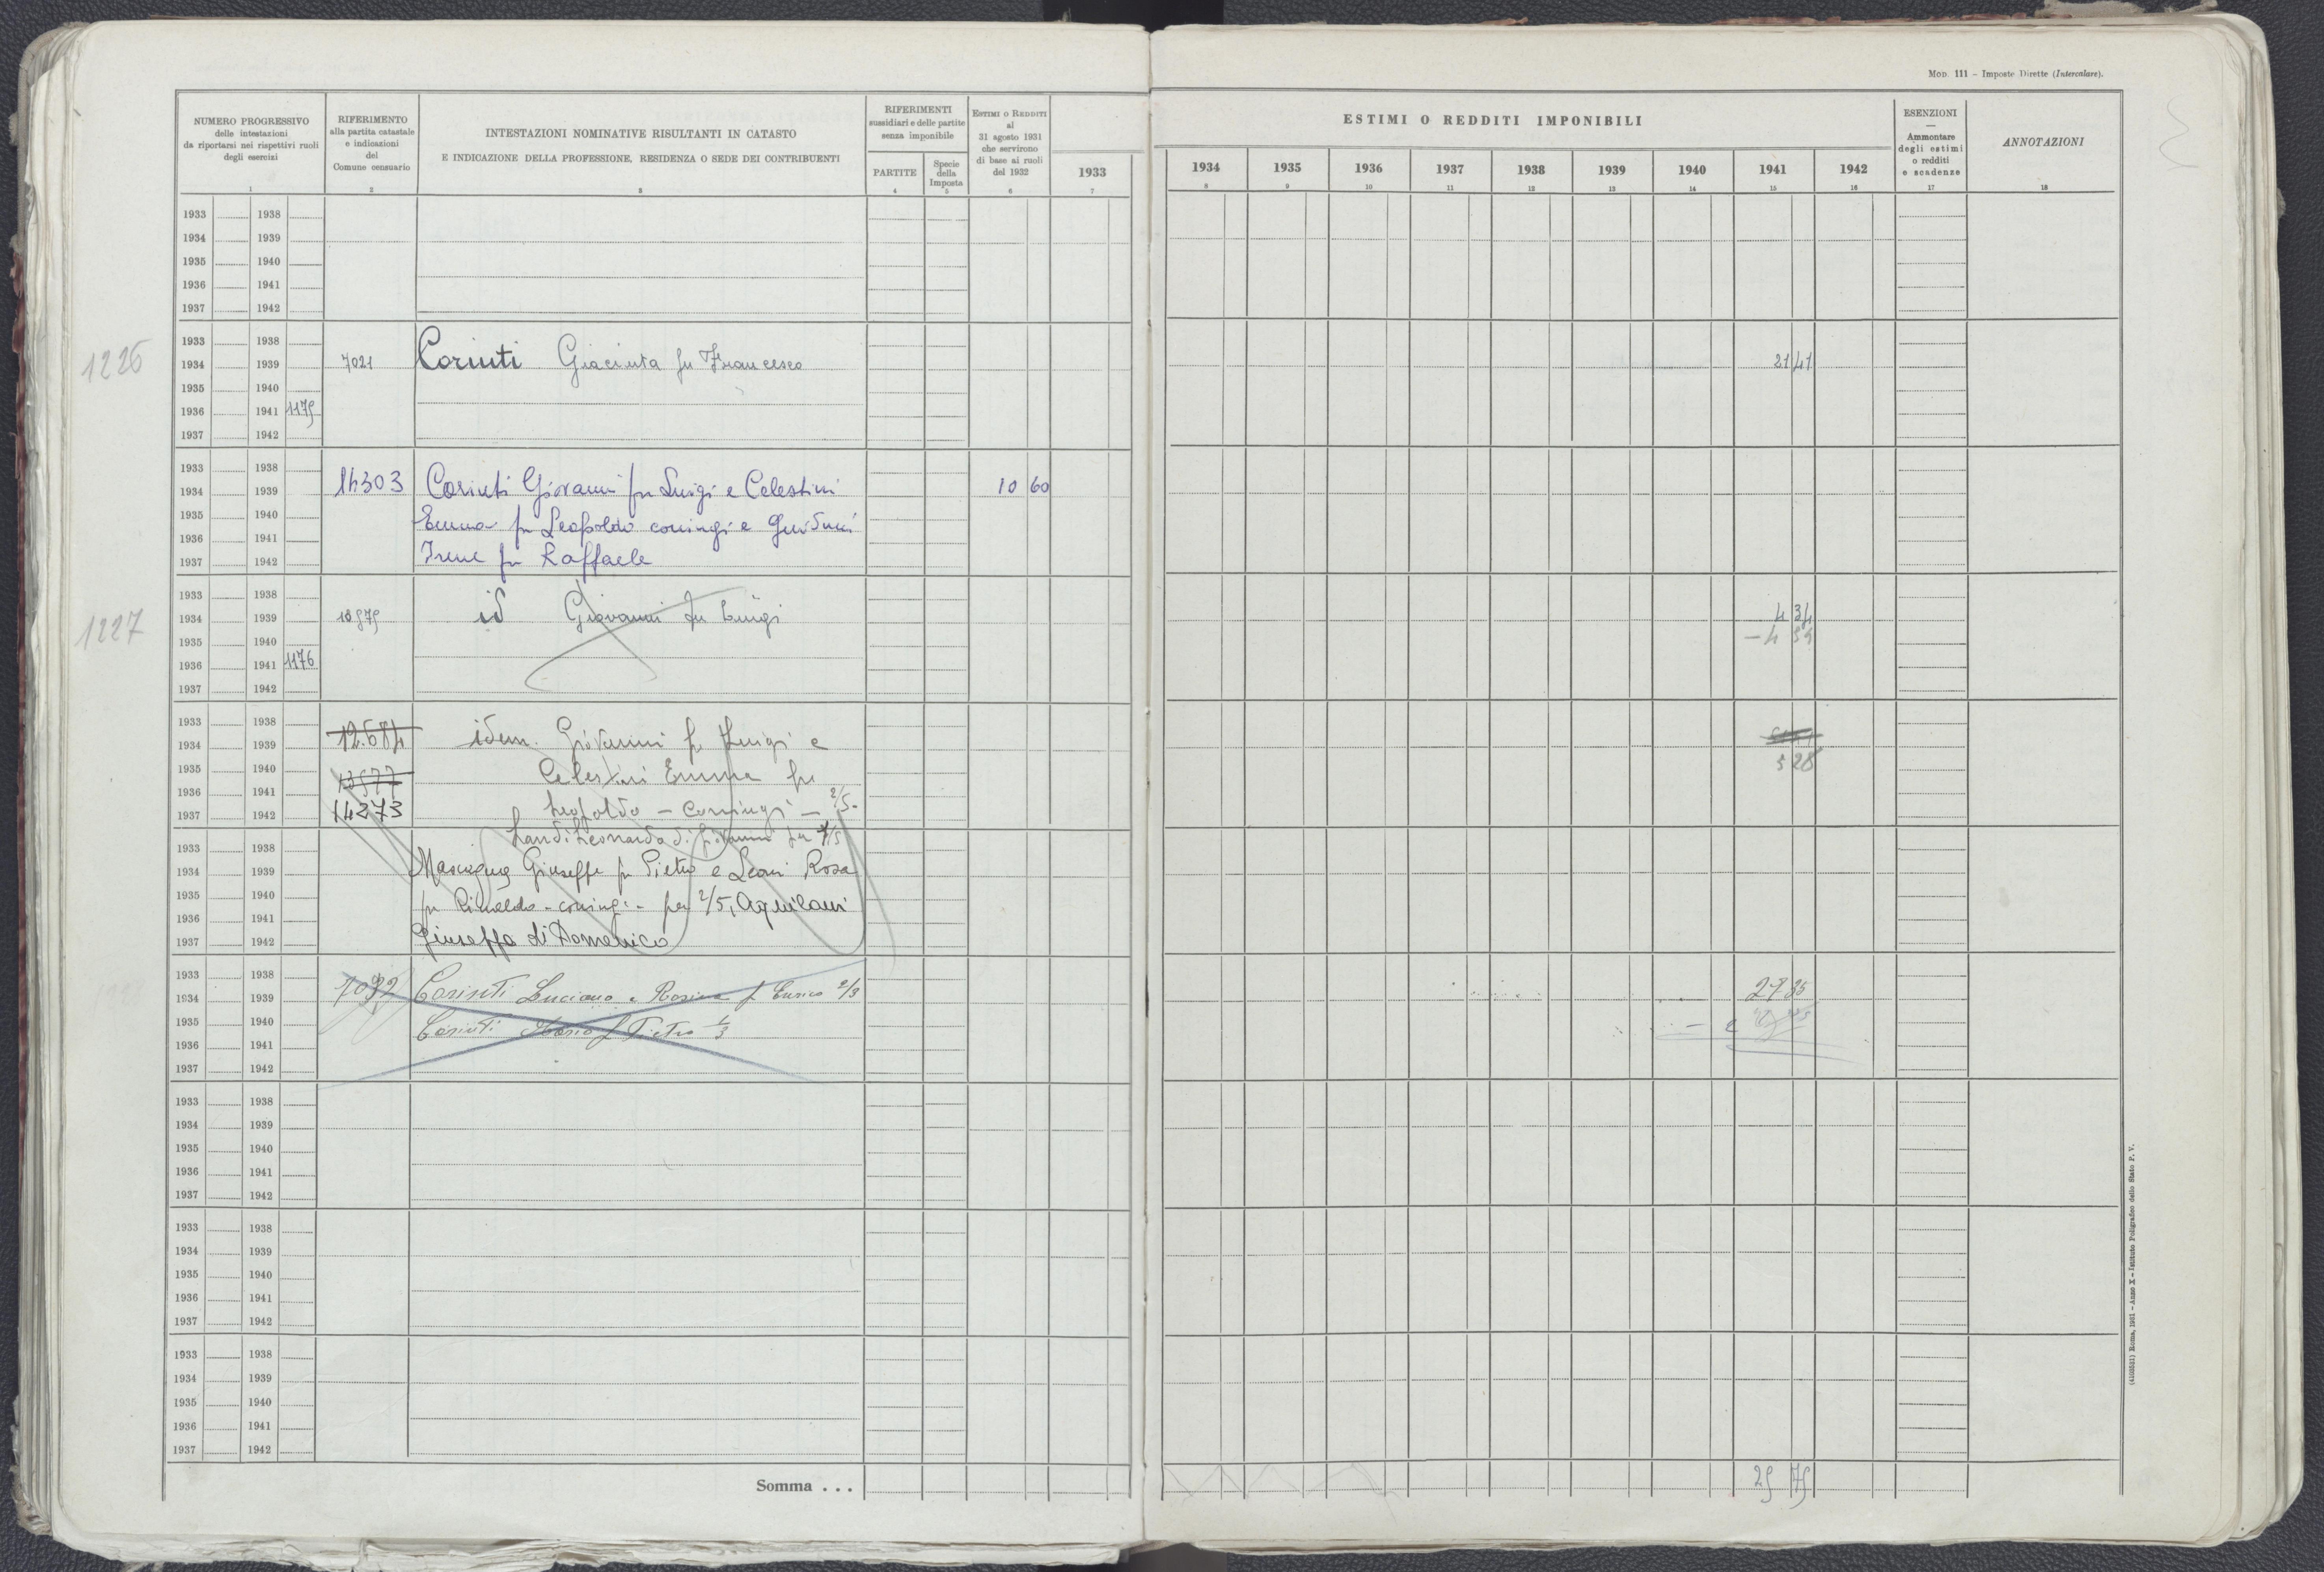 MOD. 111 – Imposte Dirette (Intercalare).
NUMERO PROGRESSIVO
delle intestazioni
da riportarsi nei rispettivi ruoli
degli esercizi
1
RIFERIMENTO
alla partita catastale
e indicazioni
del
Comune censuario
2
INTESTAZIONI NOMINATIVE RISULTANTI IN CATASTO
E INDICAZIONE DELLA PROFESSIONE, RESIDENZA O SEDE DEI CONTRIBUENTI
3
RIFERIMENTI
sussidiari e delle partite
senza imponibile
PARTITE
4
Specie
della
Imposta
5
ESTIMI O REDDITI
al
31 agosto 1931
che servirono
di base ai ruoli
del 1932
6
1933
7
ESTIMI O REDDITI IMPONIBILI
1934 1935 1936 1937 1938 1939 1940 1941 1942
8 9 10 11 12 13 14 15 16
ESENZIONI
—
Ammontare
degli estimi
o redditi
e scadenze
17
ANNOTAZIONI
18
1933 1938
1934 1939
1935 1940
1936 1941
1937 1942
1226
1933 1938
1934 1939 7021 Corinti Giacinta fu Francesco 21 41
1935 1940
1936 1941 1175
1937 1942
1933 1938
14303 Corinti Giovanni fu Luigi e Celestini 10 60
1934 1939
1935 1940 Emma fu Leopoldo coniugi e
1936 1941
1937 1942 Irene fu Raffaele
1227
1933 1938
1934 1939 id Giovanni fu Luigi 4 34
1935 1940
1936 1941 1176
1937 1942
1933 1938
1934 1939 12.684 idem. Giovanni fu Luigi e
1935 1940 Celestini Emma fu 5 28
1936 1941
1937 1942 14273 Leopoldo – coniugi – 2/5.
Landi Leonardo di Giovanni per 1/5
1933 1938
1934 1939 Giuseppe fu Pietro e Leoni Rosa
1935 1940
1936 1941 fu Rinaldo – coniugi – per 2/5, Aquilani
1937 1942 Giuseppa di Domenico
1933 1938
1934 1939 Corinti Luciano e Rosina f Enrico 2/3 27 35
1935 1940 Corinti f Pietro 1/3
1936 1941
1937 1942
1933 1938
1934 1939
1935 1940
1936 1941
1937 1942
1933 1938
1934 1939
1935 1940
1936 1941
1937 1942
1933 1938
1934 1939
1935 1940
1936 1941
1937 1942
Somma . . . 25 75
(4103531) Roma, 1931 – Anno X – Istituto Poligrafico dello Stato P. V.